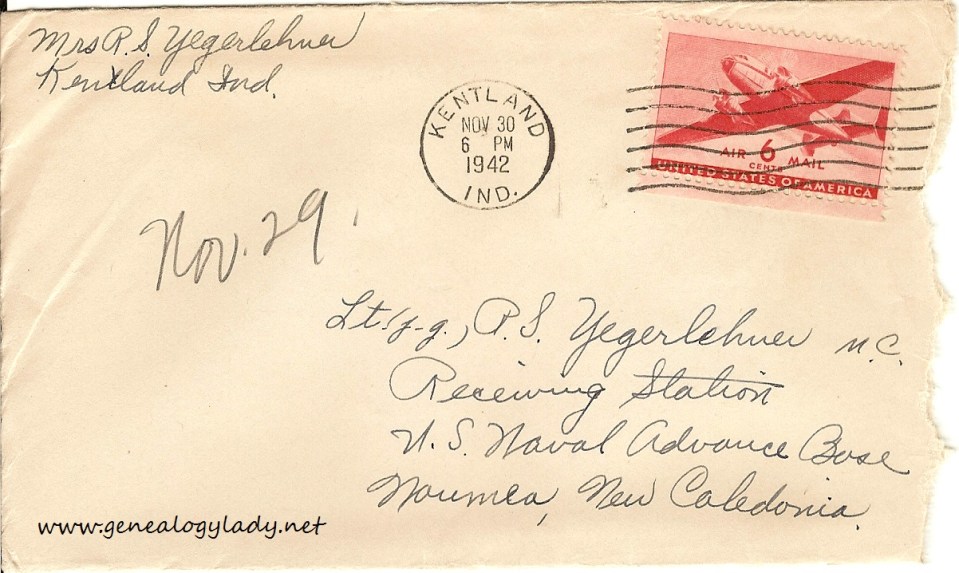 Mrs R. S. Yegerlehner
Kentland Ind.
KENTLAND
NOV 30
6 PM
1942
IND.
AIR 6 MAIL
CENTS
UNITED STATES OF AMERICA
Nov. 29.
Lt. (j.g.), R. S. Yegerlehner M.C.
Receiving Station
U. S. Naval Advance Base
Noumea, New Caledonia.
www.genealogylady.net